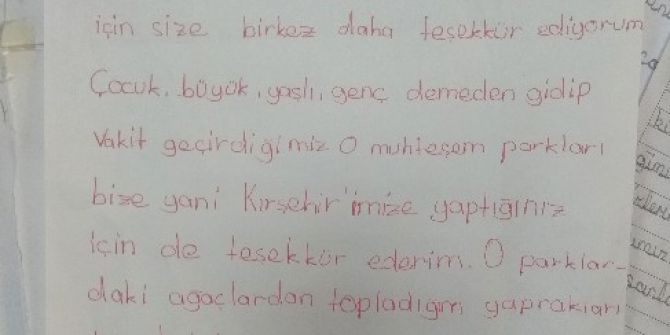 için size birkez daha teşekkür ediyorum
Çocuk, büyük, yaşlı, genç demeden gidip
Vakit geçirdiğimiz O muhteşem parkları
bize yani Kırşehir'imize yaptığınız
için de teşekkür ederim. O parklar-
daki ağaçlardan topladığım yaprakları